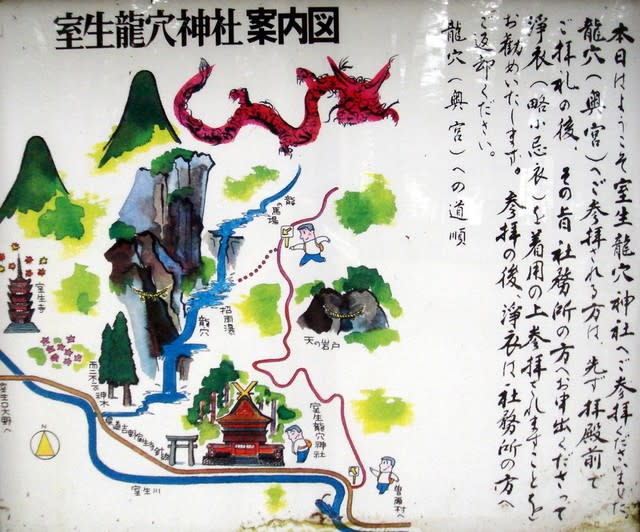 室生龍穴神社 案内図
本日はようこそ室生龍穴神社へご参拝くださいました。
龍穴（奥宮）へご参拝される方は、先ず拝殿前で
ご拝礼の後、その旨社務所の方へお申出くださって
浄衣（略小忌衣）を着用の上参拝されますことを
お勧めいたします。参拝の後、浄衣は社務所の方へ
ご返却ください。
龍穴（奥宮）への道順
龍の馬場
招雨瀑
龍穴
天の岩戸
室生寺
神木
室生龍穴神社
室生口大野へ
室生川
曽爾村へ
N